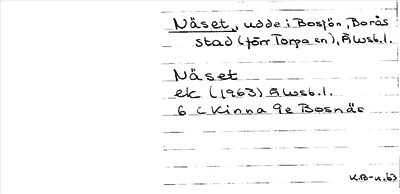 Näset, udde i Bosjön, Borås
stad (förr Torpa sn), Älvsb.l.
Näset
ek (1963) Älvsb.l.
6 C Kinna 9e Bosnäs
K.B-n.63